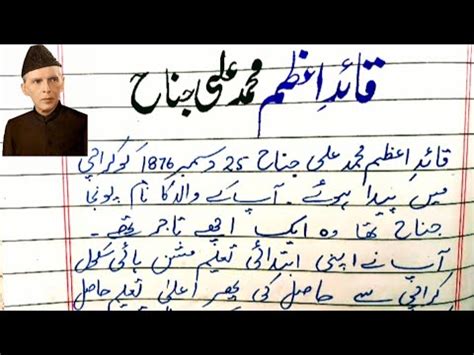 قائدِ اعظم محمد علی جناح
قائدِ اعظم محمد علی جناح 25 دسمبر 1876 کو کراچی
میں پیدا ہوئے ۔ آپ کے والد کا نام پونجا
جناح تھا وہ ایک اچھے تاجر تھے ۔
آپ نے اپنی ابتدائی تعلیم مشن ہائی سکول
کراچی سے حاصل کی پھر اعلیٰ تعلیم حاصل